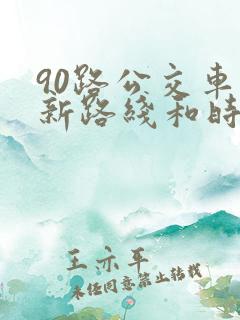 90路公交车
新路线和时
王亦平
未经同意禁止转载